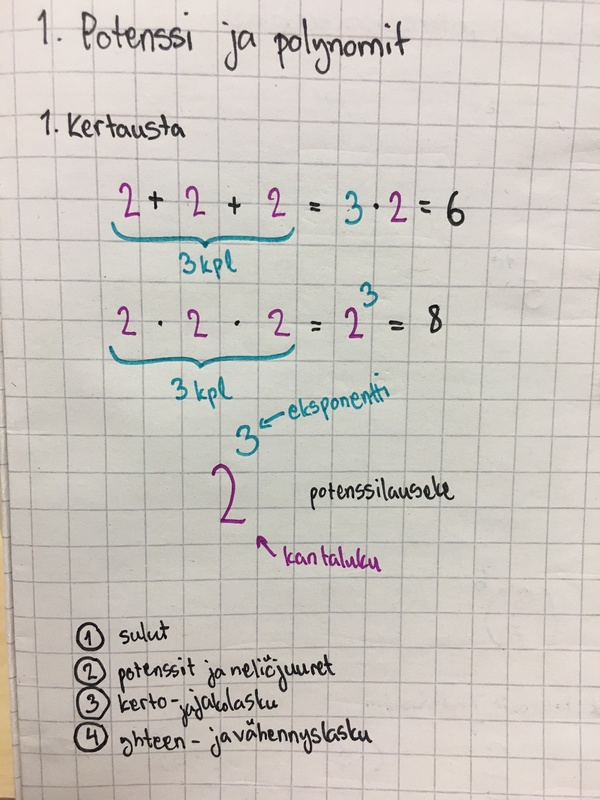 1. Potenssi ja polynomit
1. Kertausta
2 + 2 + 2 = 3 · 2 = 6
3 kpl
2 · 2 · 2 = 2³ = 8
3 kpl
3 ← eksponentti
2 potenssilauseke
kantaluku
① sulut
② potenssit ja neliöjuuret
③ kerto- ja jakolasku
④ yhteen- ja vähennyslasku